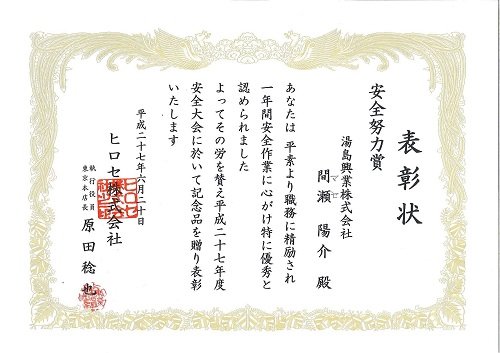 表彰状
安全努力賞
湯島興業株式会社
間瀬陽介殿
マセ
あなたは 平素より職務に精励され
一年間安全作業に心がけ特に優秀と
認められました
よってその労を賛え平成二十七年度
安全大会に於いて記念品を贈り表彰
いたします
平成二十七年六月二十日
ヒロセ株式会社
執行役員
東京本店長
原田稔也